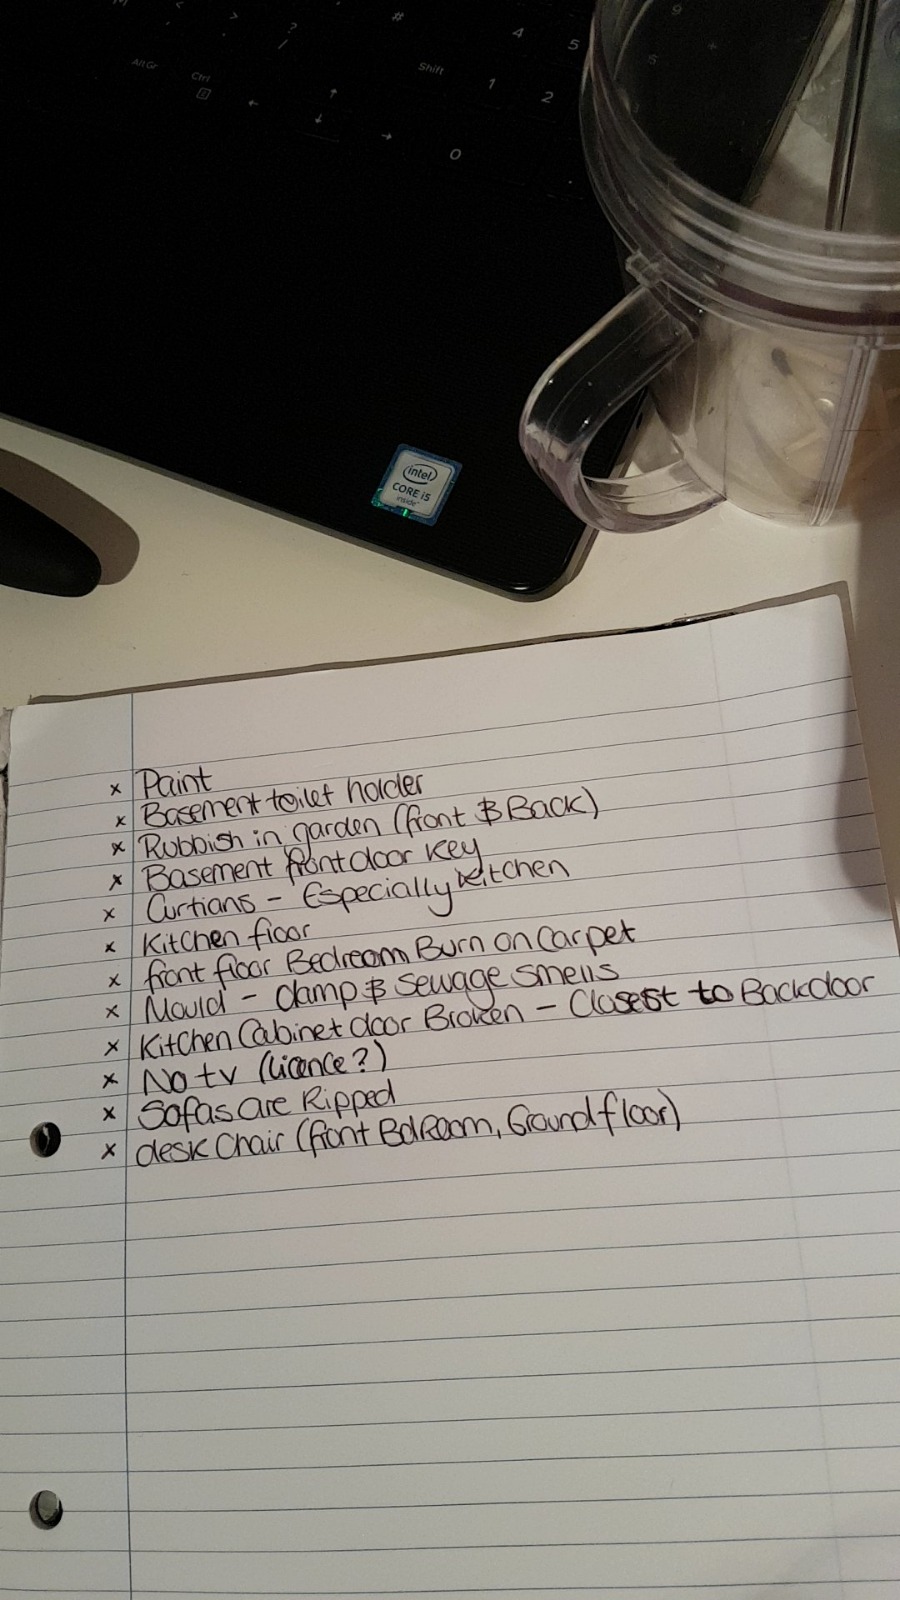 M < > ? / # 4 5 9 6 +
Alt Gr Ctrl Shift 1 2
← ↑ ↓ → 0 .
intel
CORE i5
inside
x Paint
x Basement toilet holder
x Rubbish in garden (front & Back)
x Basement front door key
x Curtians - Especially kitchen
x Kitchen floor
x front floor Bedroom Burn on Carpet
x Mould - damp & sewage smells
x Kitchen Cabinet door Broken - Closest to Backdoor
x No tv (Licence?)
x Sofas are Ripped
x desk Chair (front BdRoom, Ground floor)